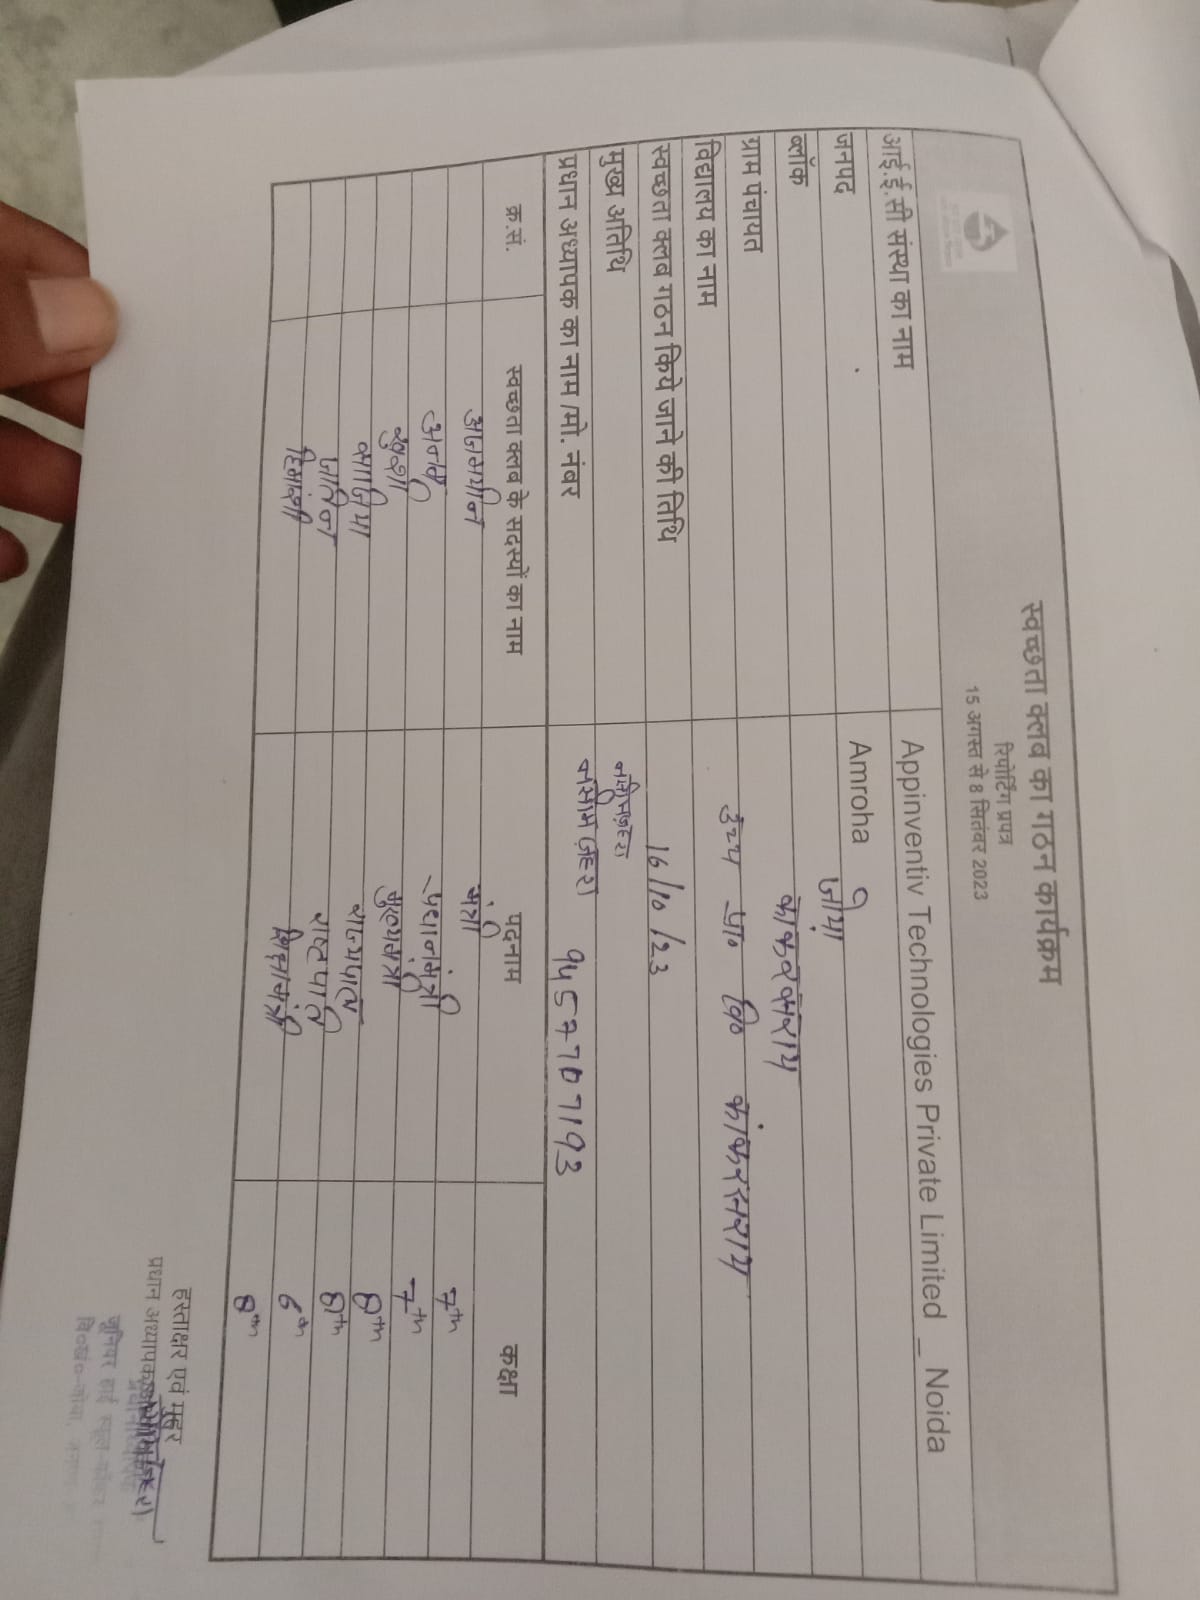 स्वच्छता क्लब का गठन कार्यक्रम
रिपोर्टिंग प्रपत्र
15 अगस्त से 8 सितंबर 2023
आई.ई.सी संस्था का नाम Appinventiv Technologies Private Limited _ Noida
जनपद Amroha
ब्लॉक जोया
ग्राम पंचायत काकरसराय
विद्यालय का नाम उच्च प्रा० वि० कांकरसराय
स्वच्छता क्लब गठन किये जाने की तिथि 16/10/23
मुख्य अतिथि
प्रधान अध्यापक का नाम /मो. नंबर 9457707193
क्र.सं. स्वच्छता क्लब के सदस्यों का नाम पदनाम कक्षा
मंत्री 7th
प्रधानमंत्री 7th
खुशी मुख्यमंत्री 8th
राज्यपाल 8th
राष्ट्रपति 6th
हिमांशी शिक्षामंत्री 8th
हस्ताक्षर एवं मुहर
प्रधान अध्यापक
जूनियर हाई स्कूल